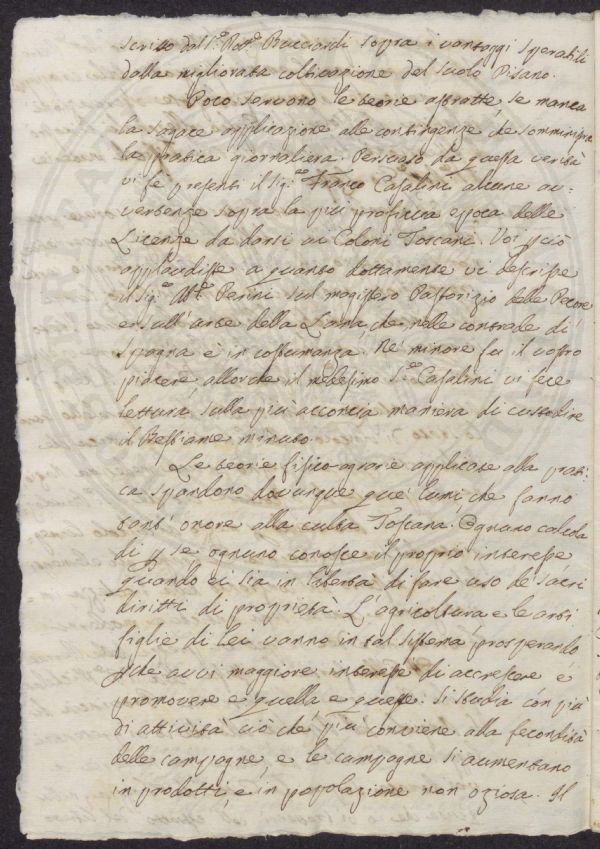 scritto dal S.r Dott.r Bucciardi sopra i vantaggi sperabili
dalla migliorata coltivazione del suolo Pisano.
Poco servono le teorie astratte, se manca
la sagace applicazione alle contingenze, che somministra
la pratica giornaliera. Persuaso da questa verità
vi fe presenti il Sig.re Franco Casalini alcune av=
vertenze sopra la più proficua epoca delle
Licenze da darsi ai Coloni Toscani. Voi
applaudiste a quanto dottamente vi descrisse
il Sig.re Ab.e Perini sul magistero Pastorizio delle Pecore
e sull'arte della Lana, che nelle contrade di
Spagna è in costumanza. Nè minore fu il vostro
piacere, allorchè il medesimo S.re Casalini vi fece
lettura, sulla più acconcia maniera di custodire
il Bestiame minuto.
Le teorie fisico-agrarie applicate alla prati:
ca spandono dovunque que' lumi, che fanno
tant' onore alla culta Toscana. Ognuno calcola
di p se, ognuno conosce il proprio interesse
quando ei sia in libertà di fare uso de' sacri
diritti di proprietà. L'agricoltura, e le arti
figlie di Lei vanno in tal sistema prosperando
pchè avvi maggiore interesse di accrescere e
promovere e quella e queste. Si studia con più
di attività ciò che più conviene alla fecondità
delle campagne, e le campagne si aumentano
in prodotti, e in popolazione non oziosa. Il